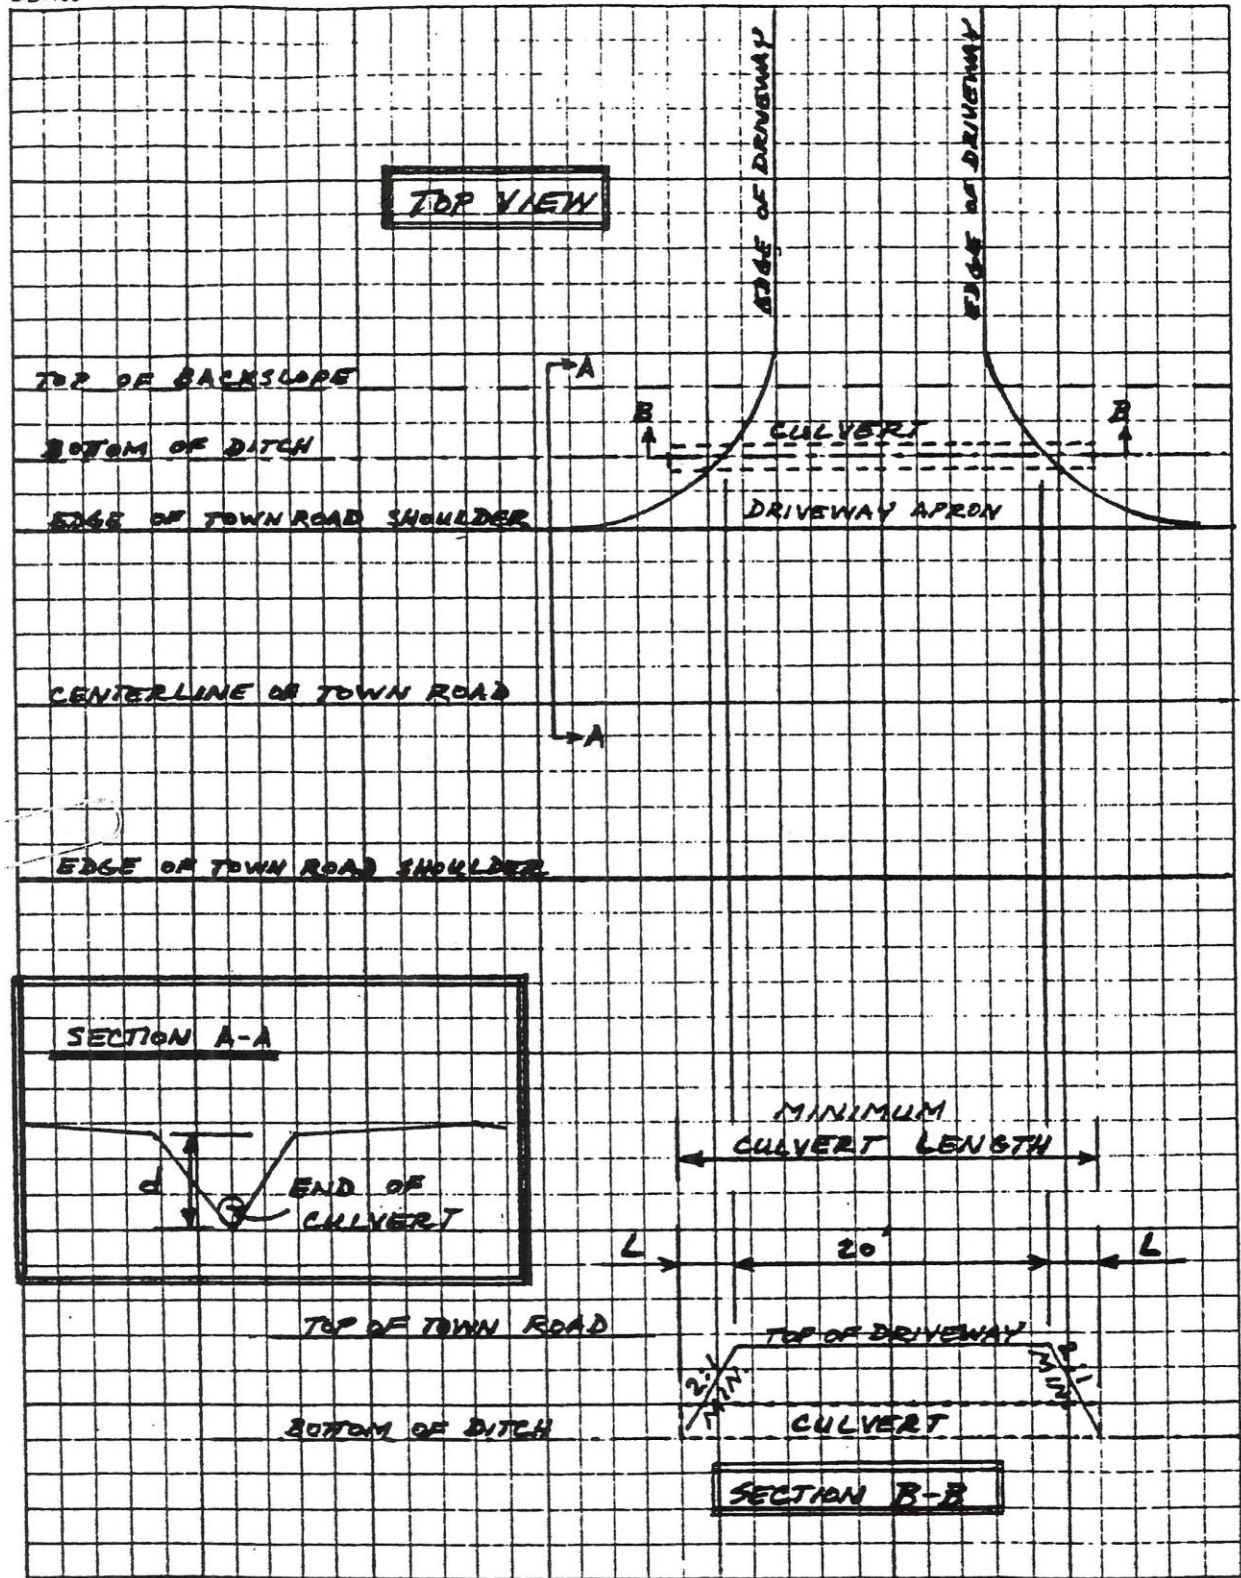 TOP VIEW
EDGE OF DRIVEWAY
EDGE OF DRIVEWAY
A
TOP OF BACKSLOPE
B
B
CULVERT
BOTTOM OF DITCH
EDGE OF TOWN ROAD SHOULDER
DRIVEWAY APRON
CENTERLINE OF TOWN ROAD
A
EDGE OF TOWN ROAD SHOULDER
SECTION A-A
d
END OF
CULVERT
MINIMUM
CULVERT LENGTH
L
20'
L
TOP OF TOWN ROAD
TOP OF DRIVEWAY
2:1
MIN.
2:1
MIN.
BOTTOM OF DITCH
CULVERT
SECTION B-B